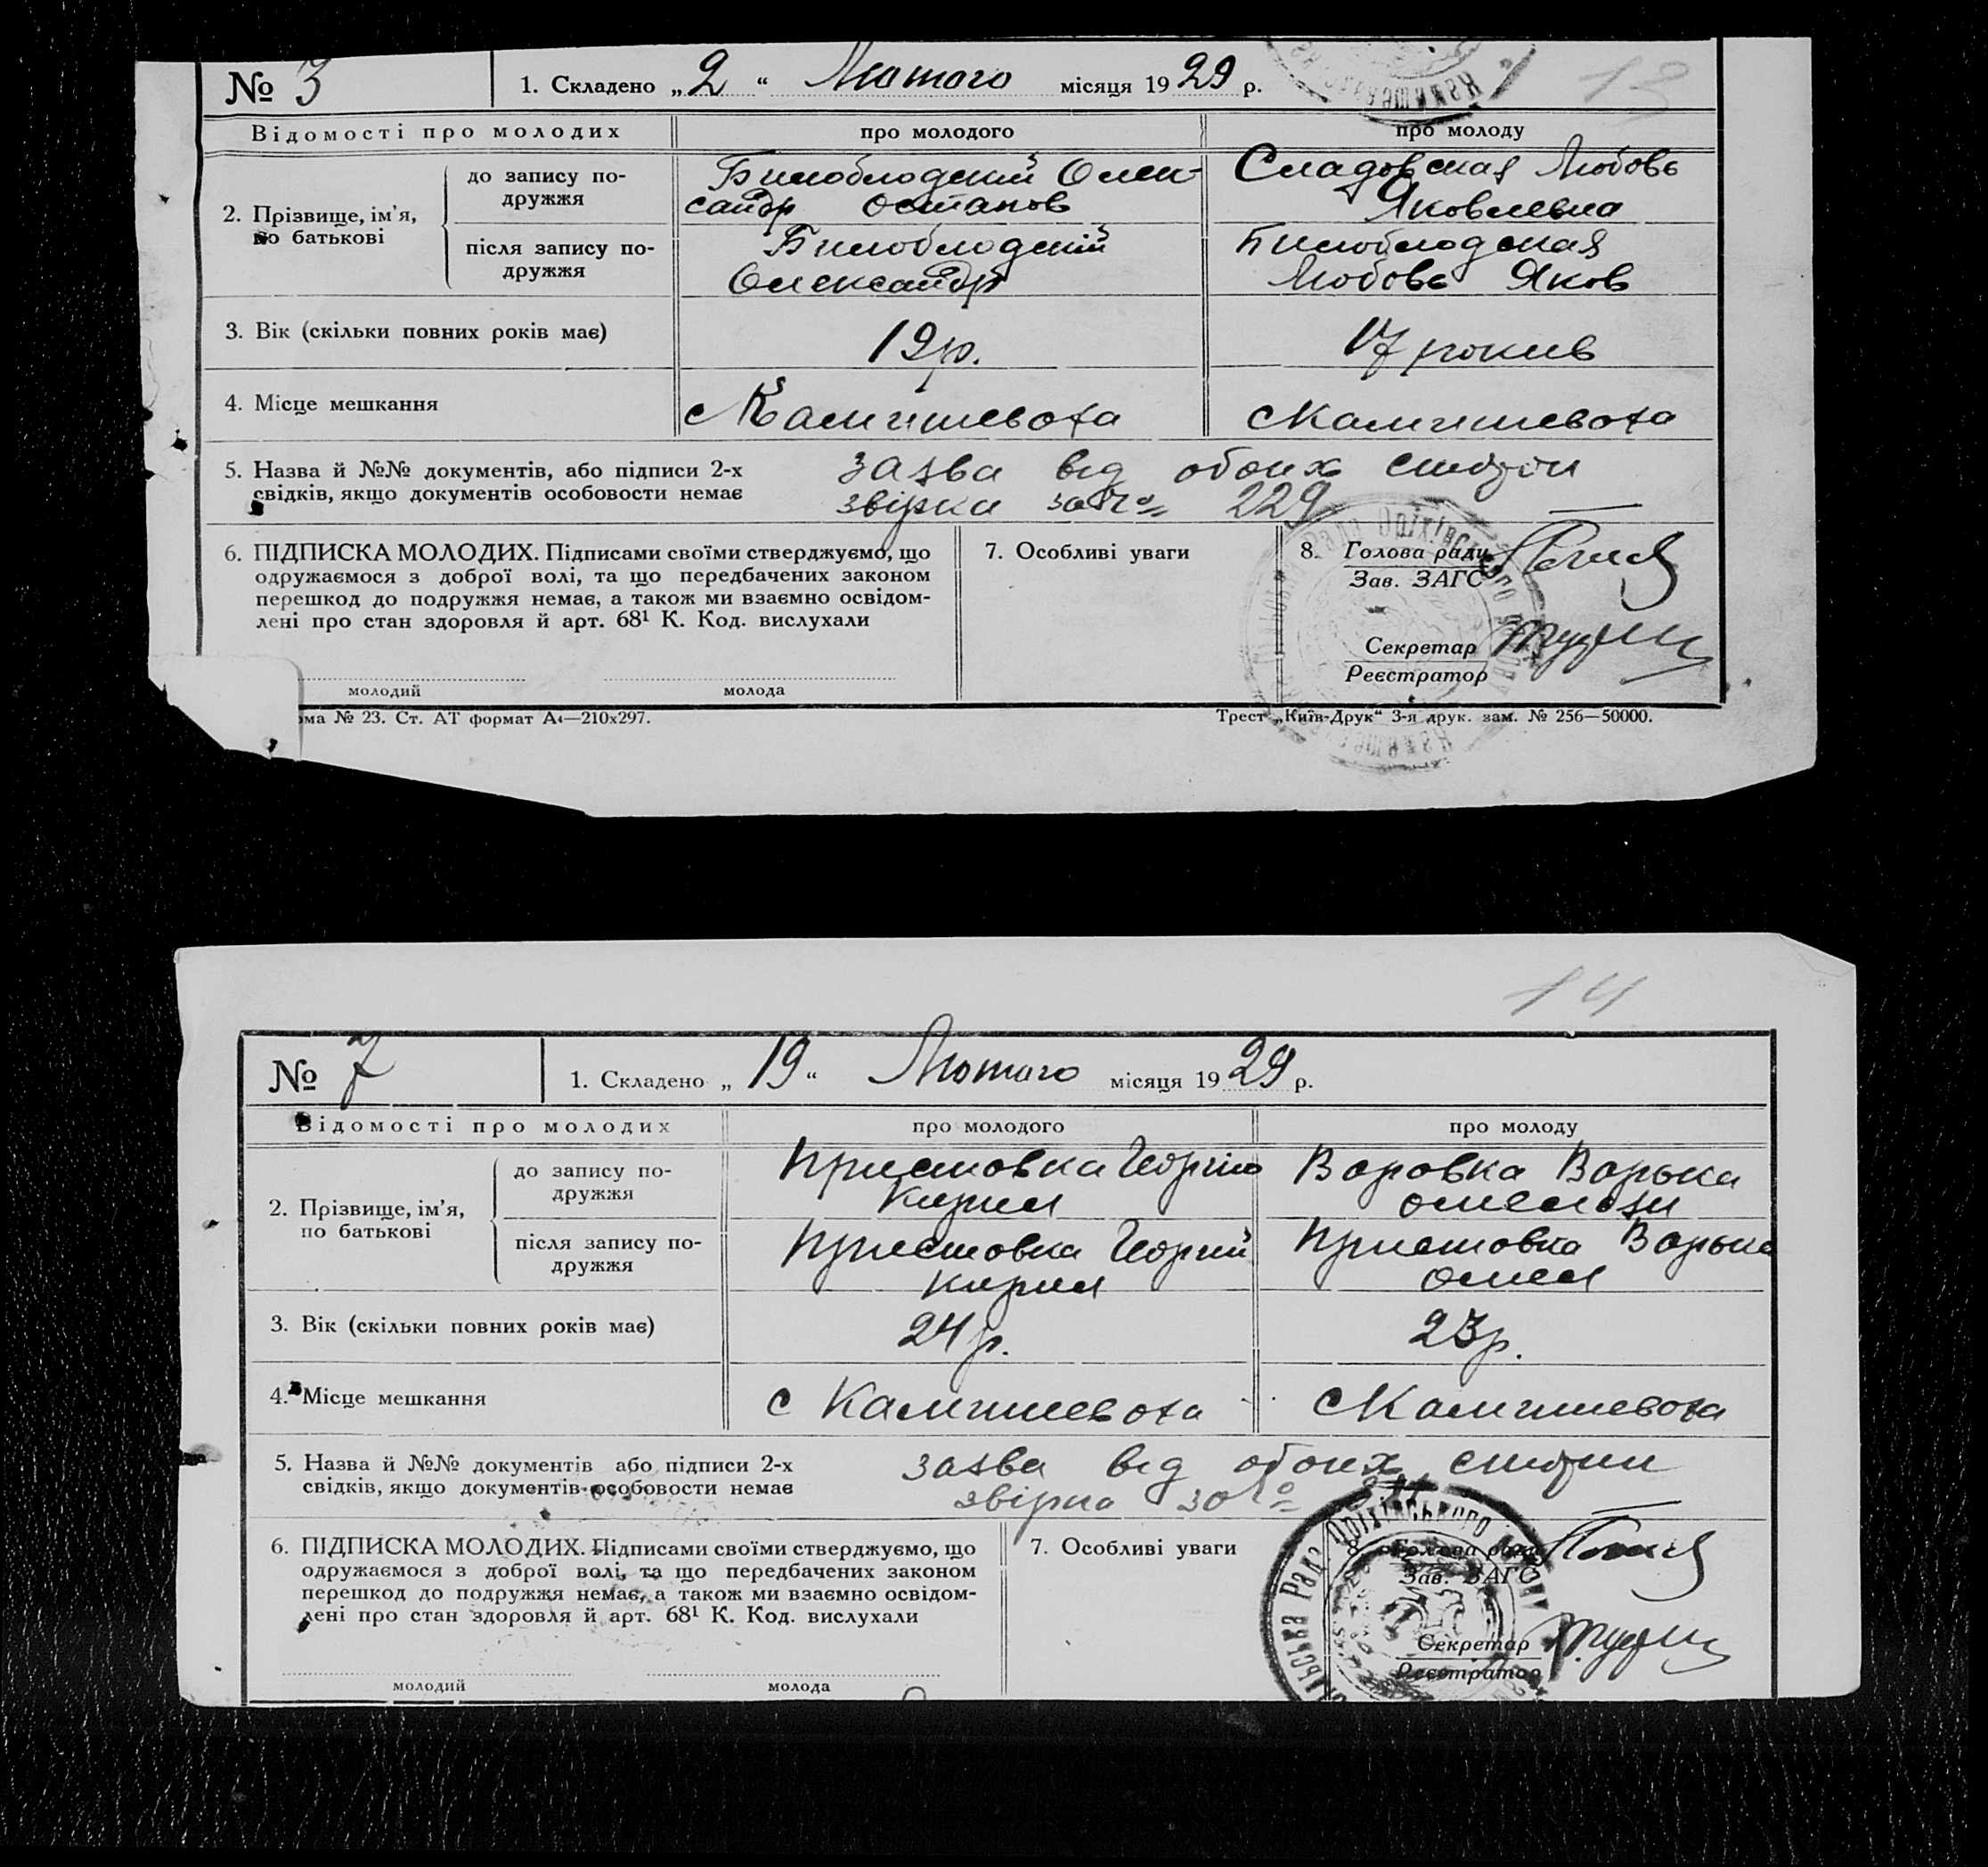 № 3
1. Складено „2“ Лютого місяця 1929 р.
13
Відомості про молодих
про молодого
про молоду
2. Прізвище, ім’я, по батькові
до запису по-
дружжя
Билоблодский Олек-
сандр Остапов
Сладовская Любовь
Яковлевна
після запису по-
дружжя
Билоблодский
Олександр
Билоблодская
Любовь Яков
3. Вік (скільки повних років має)
19 р.
17 рокив
4. Місце мешкання
с Камишеваха
с Камишеваха
5. Назва й №№ документів, або підписи 2-х
свідків, якщо документів особовости немає
заява від обоих сторон
звірка за № 229
6. ПІДПИСКА МОЛОДИХ. Підписами своїми стверджуємо, що
одружаємося з доброї волі, та що передбачених законом
перешкод до подружжя немає, а також ми взаємно освідом-
лені про стан здоровля й арт. 68¹ К. Код. вислухали
молодий
молода
7. Особливі уваги
8. Голова ради
Зав. ЗАГС
Секретар
Реєстратор
рма № 23. Ст. АТ формат А4—210х297.
Трест „Київ-Друк“ 3-я друк. зам. № 256—50000.
14
№ 7
1. Складено „19“ Лютого місяця 1929 р.
Відомості про молодих
про молодого
про молоду
2. Прізвище, ім’я,
по батькові
до запису по-
дружжя
Пристовка Георгій
Кирил
Воровка Варька
після запису по-
дружжя
Пристовка Георгий
Кирил
Пристовка Варька
Омел
3. Вік (скільки повних років має)
24 р.
23 р.
4. Місце мешкання
с Камишеваха
с Камишеваха
5. Назва й №№ документів або підписи 2-х
свідків, якщо документів особовости немає
заява від обоих сторон
звірка за №
6. ПІДПИСКА МОЛОДИХ. Підписами своїми стверджуємо, що
одружаємося з доброї волі, та що передбачених законом
перешкод до подружжя немає, а також ми взаємно освідом-
лені про стан здоровля й арт. 68¹ К. Код. вислухали
молодий
молода
7. Особливі уваги
8. Голова ради
Зав. ЗАГС
Секретар
Реєстратор
Рада Оріхівського